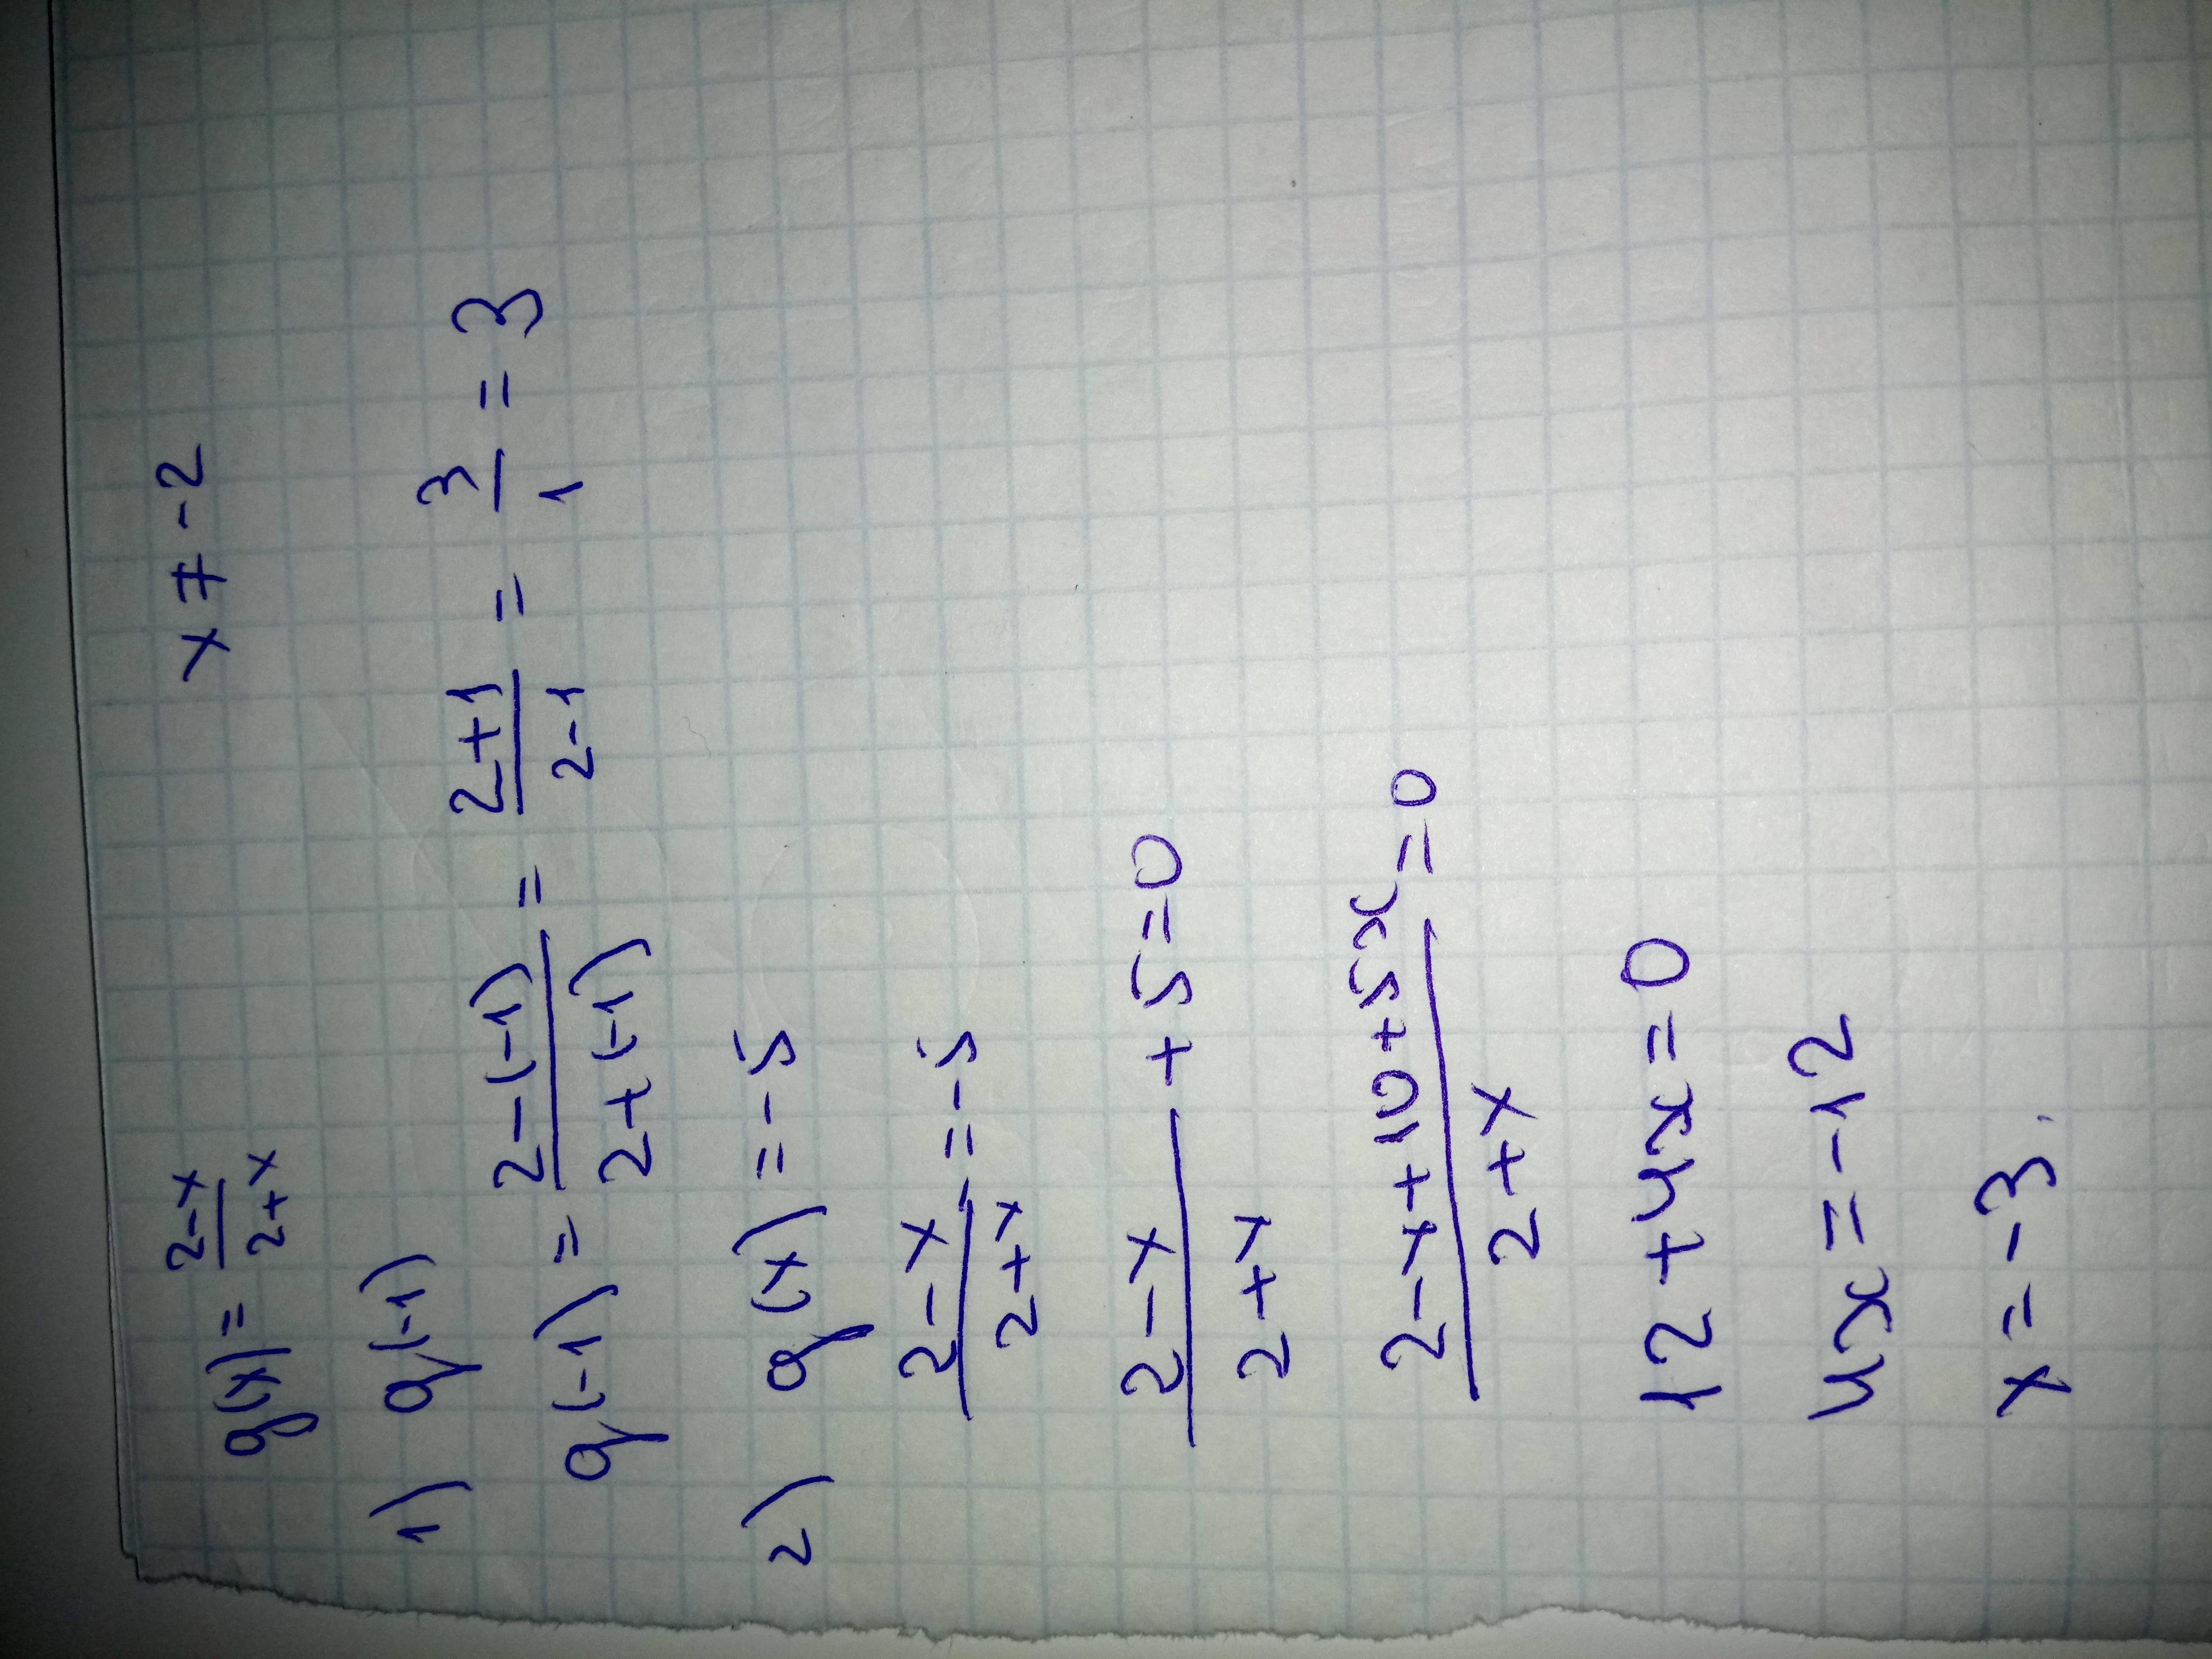 g(x) = (2-x)/(2+x) x ≠ -2
1) g(-1)
g(-1) = (2-(-1))/(2+(-1)) = (2+1)/(2-1) = 3/1 = 3
2) g(x) = -5
(2-x)/(2+x) = -5
(2-x)/(2+x) + 5 = 0
(2-x+10+5x)/(2+x) = 0
12 + 4x = 0
4x = -12
x = -3.